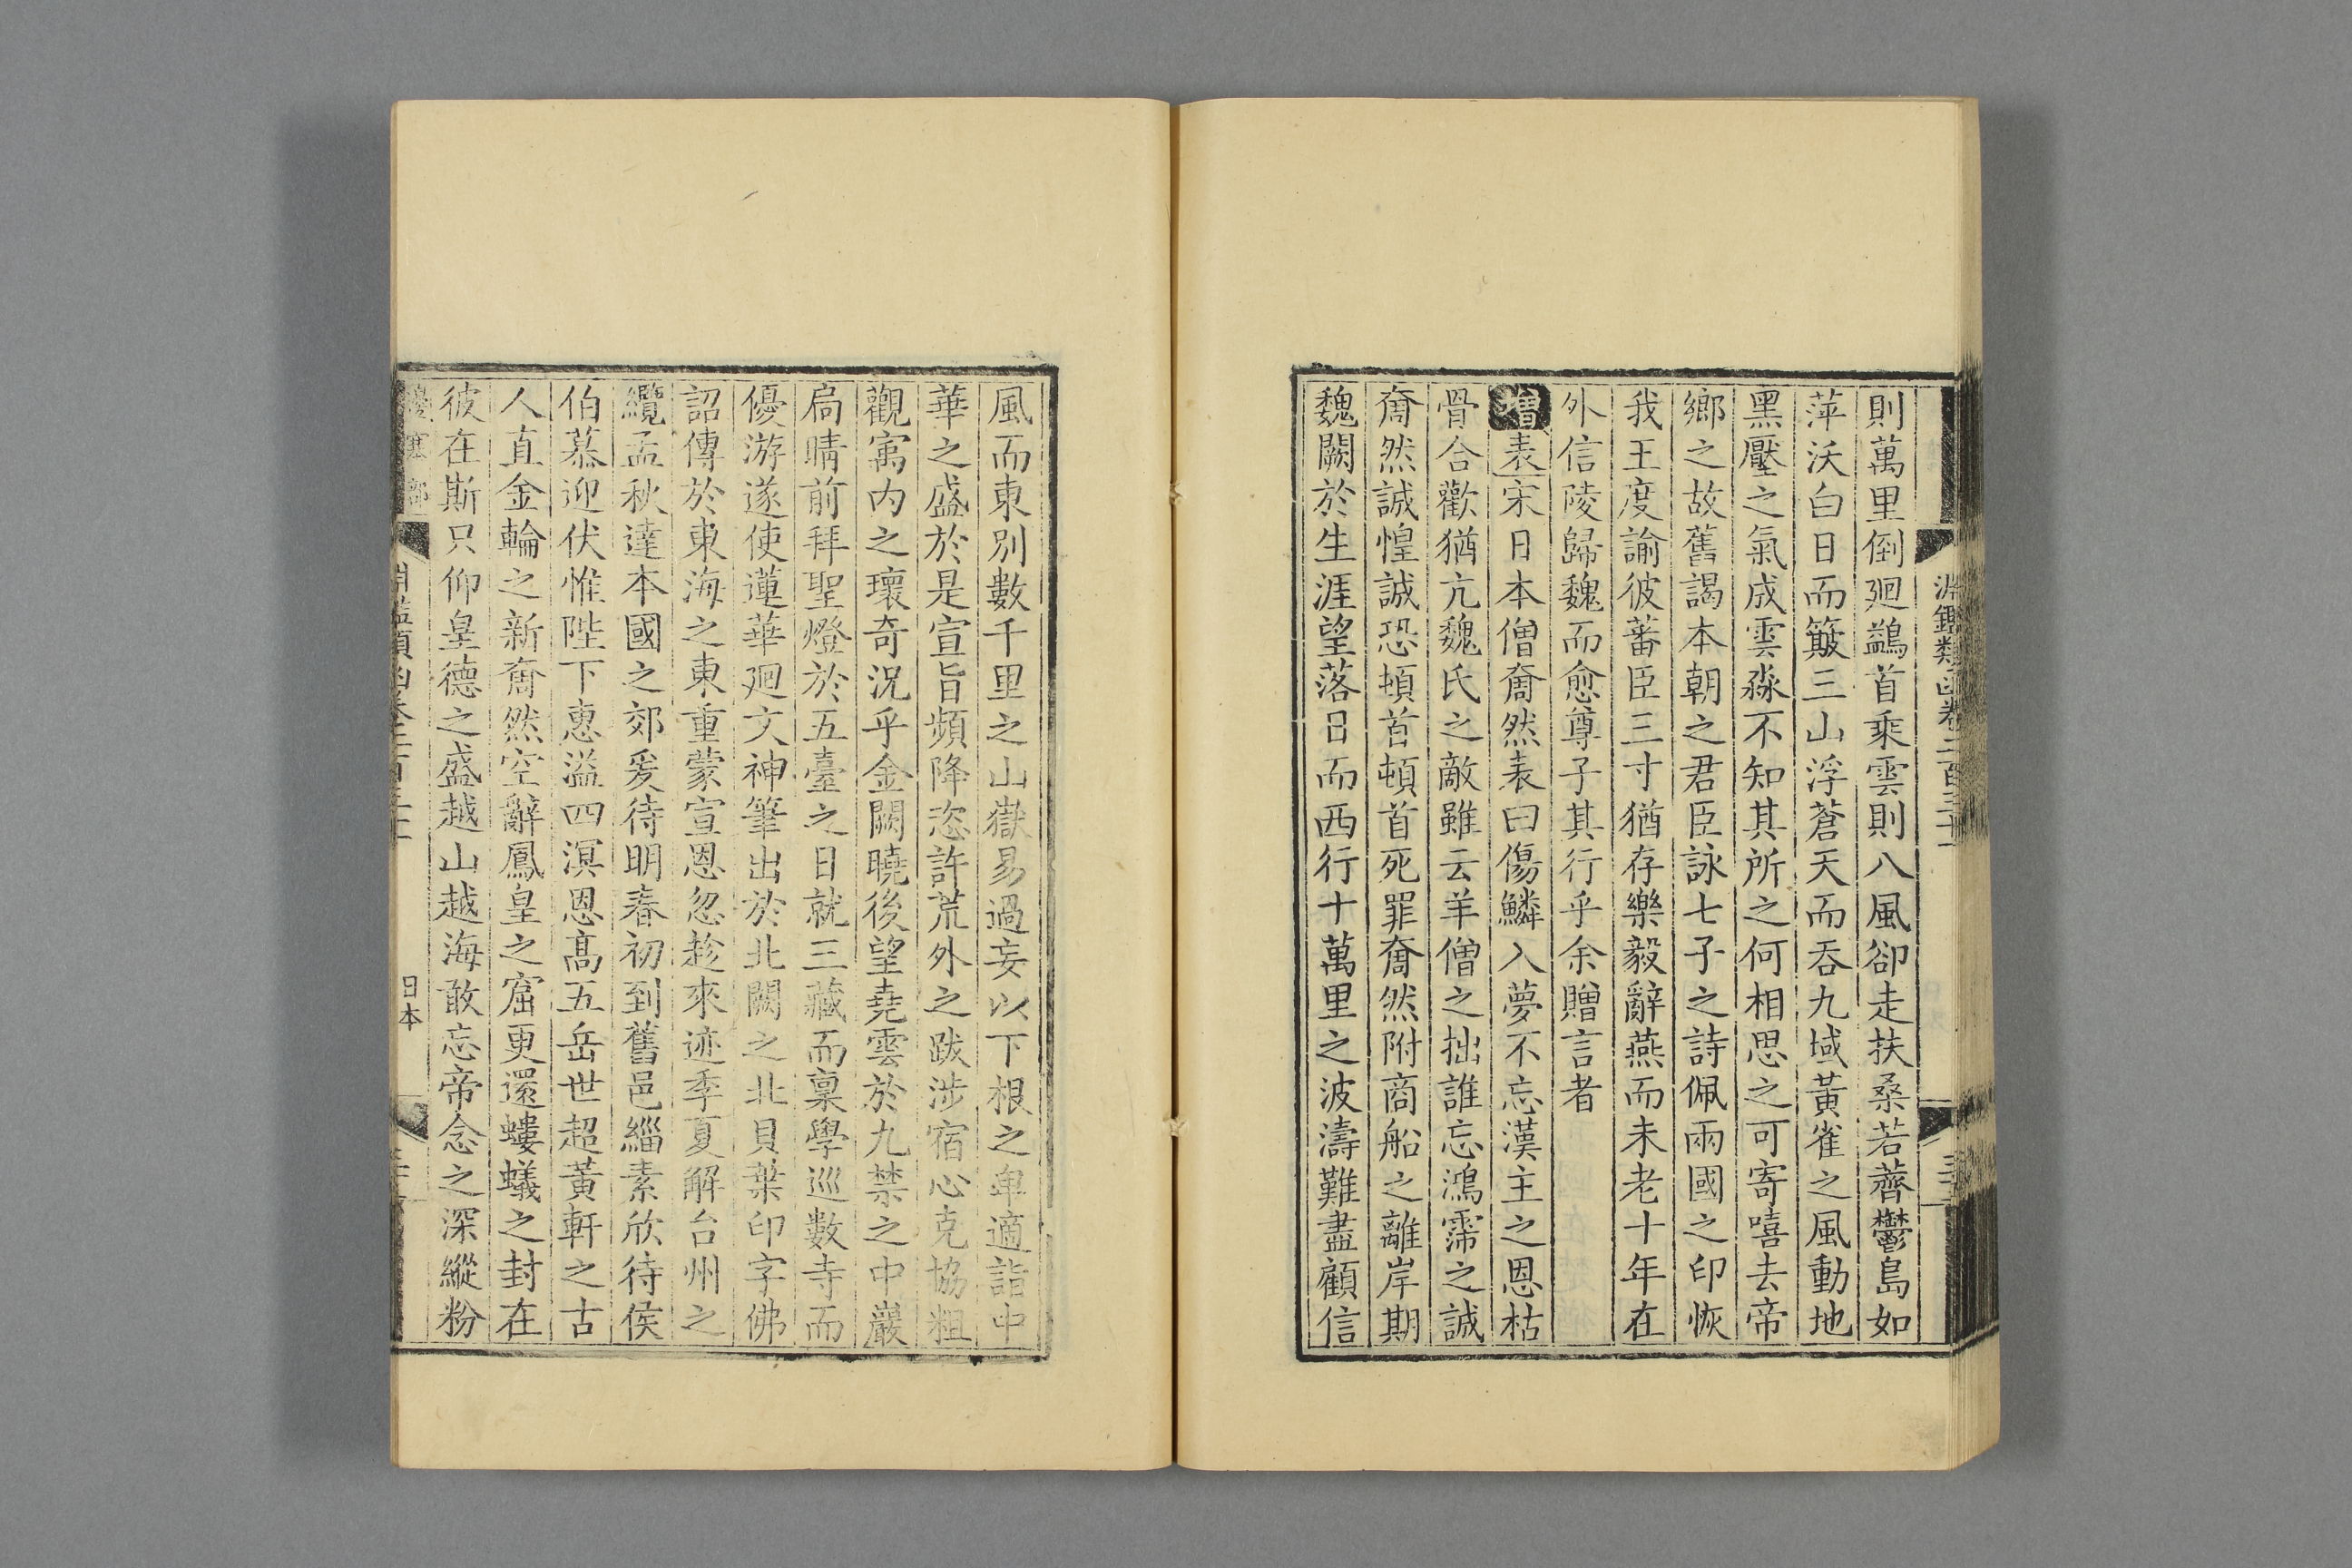 淵鑑類函卷二百三十一
則萬里倒廻鷁首乘雲則八風卻走扶桑若薺鬱島如
萍沃白日而簸三山浮蒼天而吞九域黃雀之風動地
黑壓之氣成雲淼不知其所之何相思之可寄嘻去帝
鄉之故舊謁本朝之君臣詠七子之詩佩兩國之印恢
我王度諭彼蕃臣三寸猶存樂毅辭燕而未老十年在
外信陵歸魏而愈尊子其行乎余贈言者
增表宋日本僧奝然表曰傷鱗入夢不忘漢主之恩枯
骨合歡猶亢魏氏之敵雖云羊僧之拙誰忘鴻霈之誠
奝然誠惶誠恐頓首頓首死罪奝然附商船之離岸期
魏闕於生涯望落日而西行十萬里之波濤難盡顧信
風而東別數千里之山嶽易過妄以下根之卑適詣中
華之盛於是宣旨頻降恣許荒外之跋涉宿心克協粗
觀寓內之瓌奇況乎金闕曉後望堯雲於九禁之中巖
扃晴前拜聖燈於五臺之日就三藏而稟學巡數寺而
優游遂使蓮華廻文神筆出於北闕之北貝葉印字佛
詔傳於東海之東重蒙宣恩忽趁來迹季夏解台州之
纜孟秋達本國之郊爰待明春初到舊邑緇素欣待侯
伯慕迎伏惟陛下惠溢四溟恩高五岳世超黃軒之古
人直金輪之新奝然空辭鳳皇之窟更還螻蟻之封在
彼在斯只仰皇德之盛越山越海敢忘帝念之深縱粉
邊塞部
日本